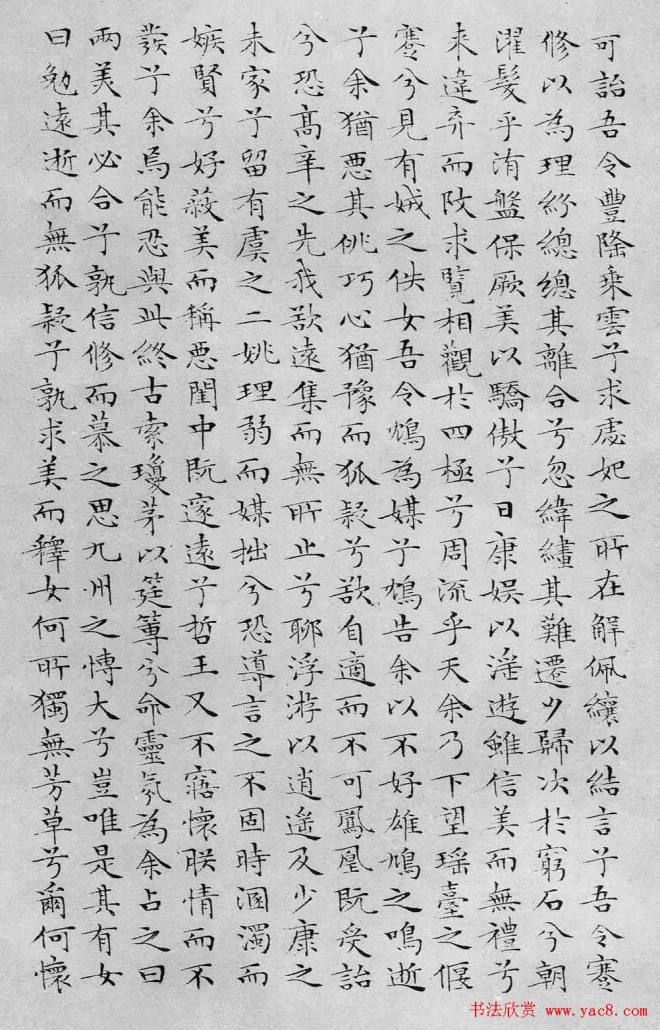 可詒吾令豐隆乗雲兮求虙妃之所在解佩纕以結言兮吾令蹇
修以為理紛總總其離合兮忽緯繣其難遷夕歸次於窮石兮朝
濯髮乎洧盤保厥美以驕傲兮日康娱以淫遊雖信美而無禮兮
来違弃而改求覽相觀於四極兮周流乎天余乃下望瑶臺之偃
蹇兮見有娀之佚女吾令鴆為媒兮鴆告余以不好雄鳩之鳴逝
兮余猶悪其佻巧心猶豫而狐疑兮欲自適而不可鳳凰既受詒
兮恐髙辛之先我欲遠集而無所止兮聊浮游以逍遥及少康之
未家兮留有虞之二姚理弱而媒拙兮恐導言之不固時溷濁而
嫉賢兮好蔽美而稱悪閨中既邃遠兮哲王又不寤懷朕情而不
發兮余焉能忍與此終古索瓊茅以筳篿兮命靈氛為余占之曰
兩美其必合兮孰信修而慕之思九州之博大兮豈唯是其有女
曰勉遠逝而無狐疑兮孰求美而釋女何所獨無芳草兮爾何懷
书法欣赏 www.yac8.com